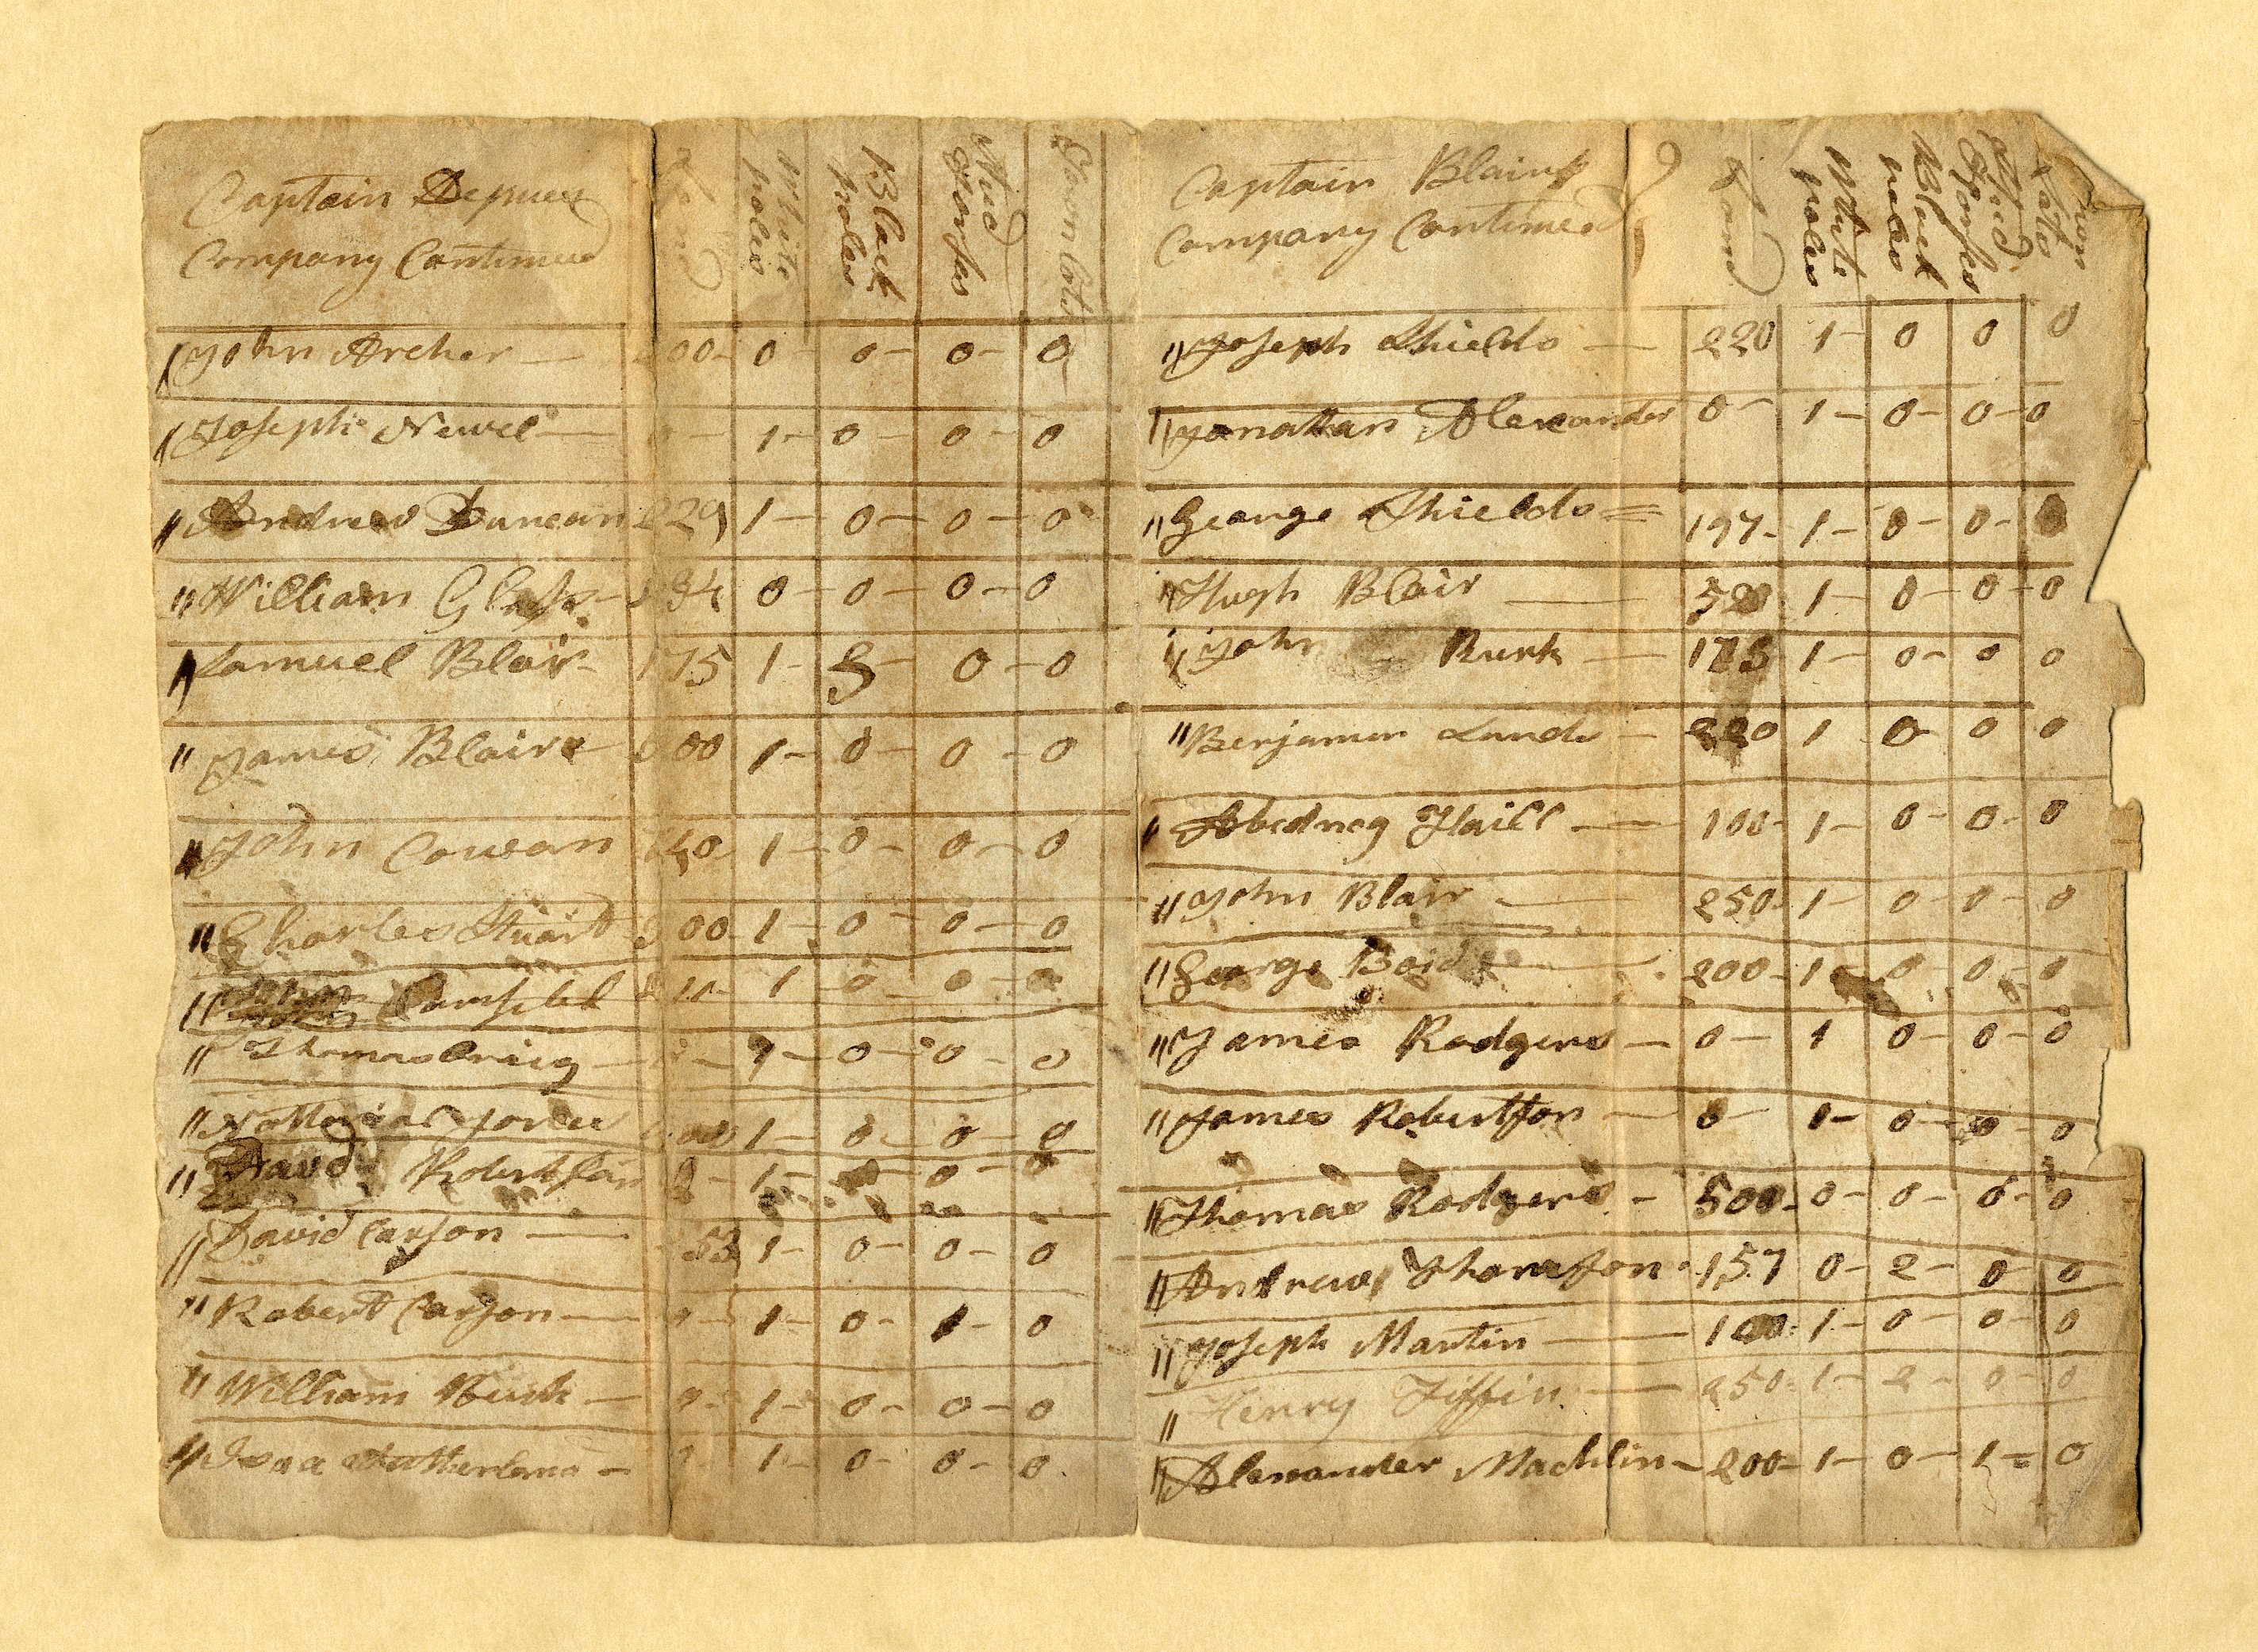 Captain
Company Continued
Land
White poles
Black poles
Stud Horses
Town Lots
" John Archer — 00 - 0 - 0 - 0 - 0
" Joseph Newel — 1 - 0 - 0 - 0
" Andrew Duncan 229 1 - 0 - 0 - 0
" William Glass - 34 0 - 0 - 0 - 0
" Samuel Blair - 175 1 - 0 - 0
" James Blair - 00 1 - 0 - 0 - 0
" John Cowan 1 - 0 - 0 - 0
" Charles Stuart 00 1 - 0 - 0 - 0
" 1 - 0 - 0 - 0
" Thomas Craig — 0 - 0 - 0
" 1 - 0 - 0 - 0
" David Robertson 1 - 0 -
" David Carson — 53 1 - 0 - 0 - 0
" Robert Carson — 1 - 0 - 1 - 0
" William — 1 - 0 - 0 - 0
" - 1 - 0 - 0 - 0
Captain Blairs
Company Continued
Land
White poles
Black poles
Stud Horses
Town Lotts
" Joseph Shields — 220 1 - 0 0 0
" Jonathan Alexander 0 - 1 - 0 - 0 - 0
" George Shields = 197 - 1 - 0 - 0 -
" Hugh Blair — 520 1 - 0 - 0 - 0
" John Burk — 1 - 0 - 0 0
" Benjamin — 220 1 0 0 0
" Abednog Haill — 100 - 1 - 0 - 0 - 0
" John Blair — 250 - 1 - 0 - 0 - 0
" George Boid — 200 - 1 - 0 - 0 - 0
" James Rodgers — 0 - 1 0 - 0 - 0
" James Robertson — 0 - 1 - 0 - 0 - 0
" Thomas Rodgers - 500 - 0 - 0 - 0 - 0
" Andrew Thomson - 157 0 - 2 - 0 0
" Joseph Martin — 100 - 1 - 0 - 0 - 0
" Henry Tiffin — 250 - 1 - 2 - 0 - 0
" Alexander Machlin - 200 - 1 - 0 - 1 = 0